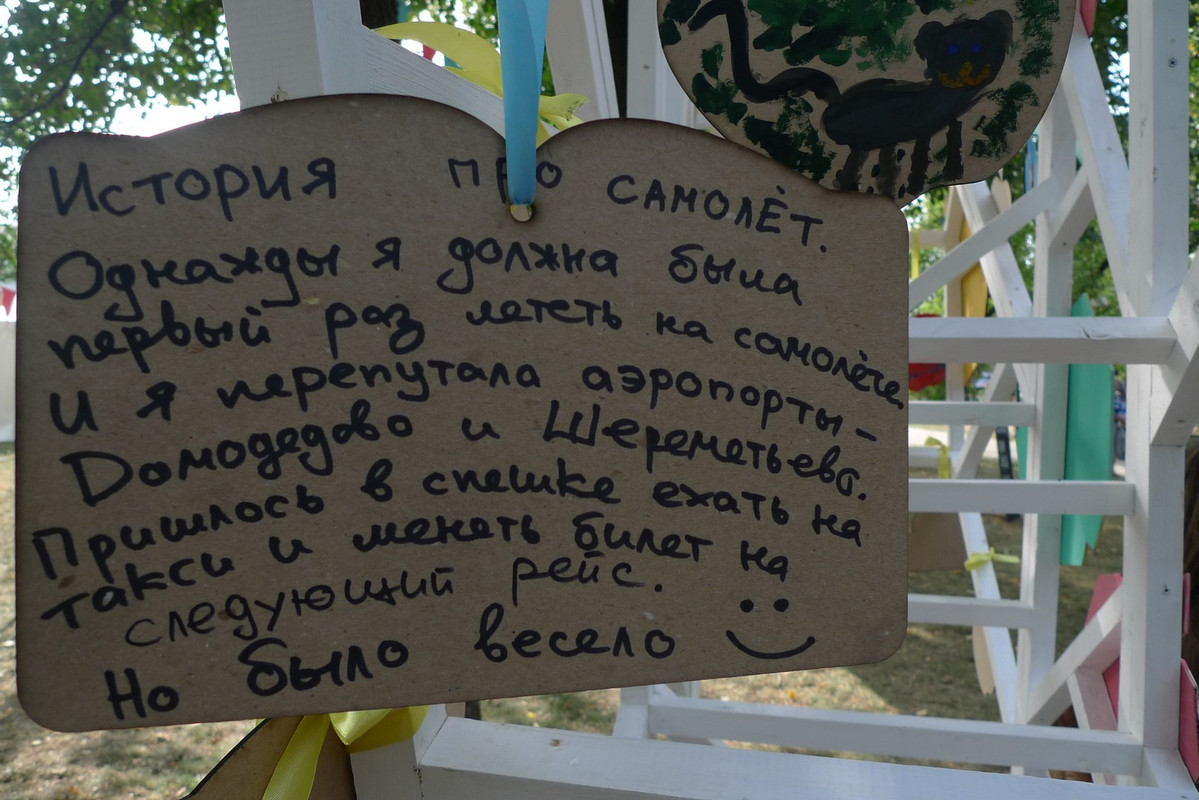 История про самолёт.
Однажды я должна была
первый раз лететь на самолёте
И я перепутала аэропорты-
Домодедово и Шереметьева.
Пришлось в спешке ехать на
такси и менять билет на
следующий рейс.
Но было весело